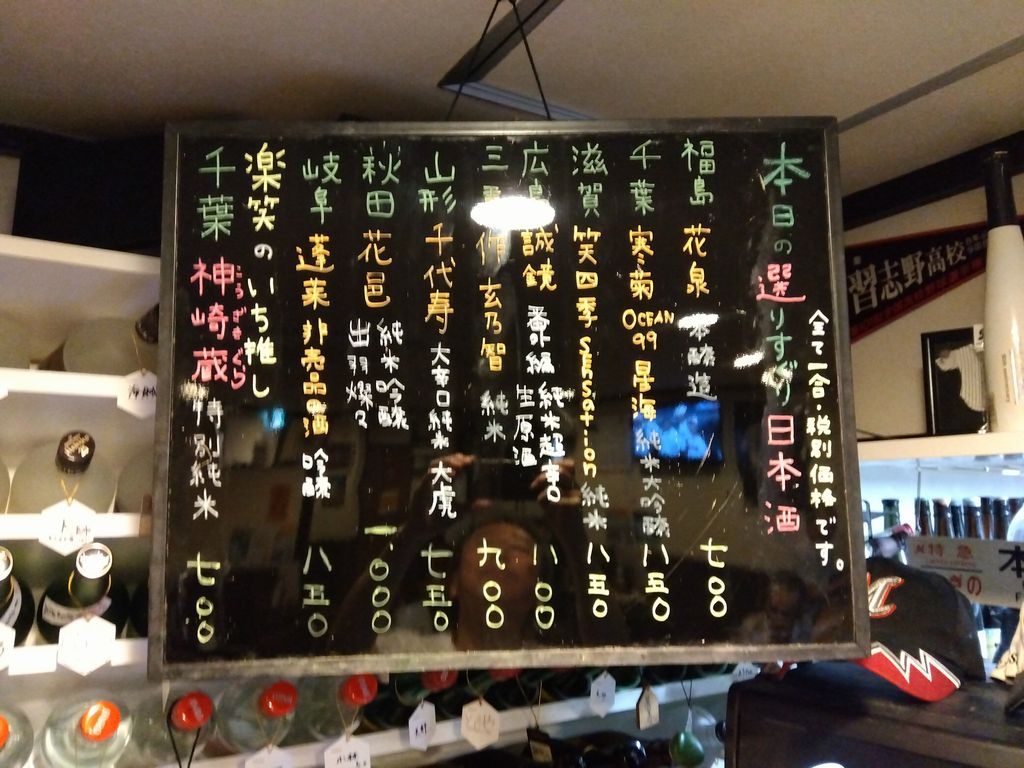 本日の選りすぐり日本酒
全て一合・税別価格です。
福島 花泉 本醸造 七〇〇
千葉 寒菊 OCEAN 99 星海 純米大吟醸 八五〇
滋賀 笑四季 Sensation 純米 八五〇
広島 誠鏡 番外編 純米超辛口 生原酒 八〇〇
三重 作 玄乃智 純米 九〇〇
山形 千代寿 大辛口純米 大虎 七五〇
秋田 花邑 純米吟醸 出羽燦々 一、〇〇〇
岐阜 蓬莱 非売品の酒 吟醸 八五〇
楽笑のいち推し
千葉 神崎蔵 特別純米 七〇〇
こうざきぐら
習志野高校
特急
本
の
M